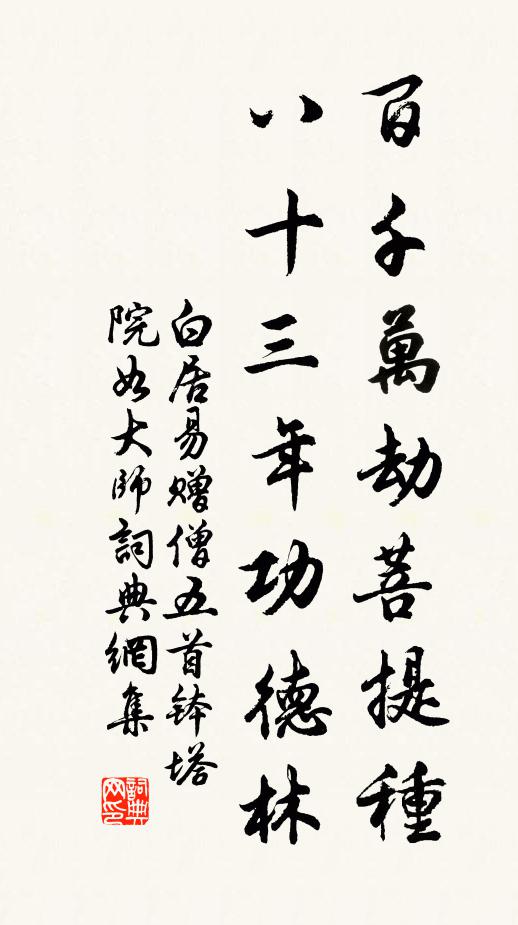 百千萬劫菩提種
八十三年功德林
白居易赠僧五首鉢塔
院如大師詞典網集
詞典
网印